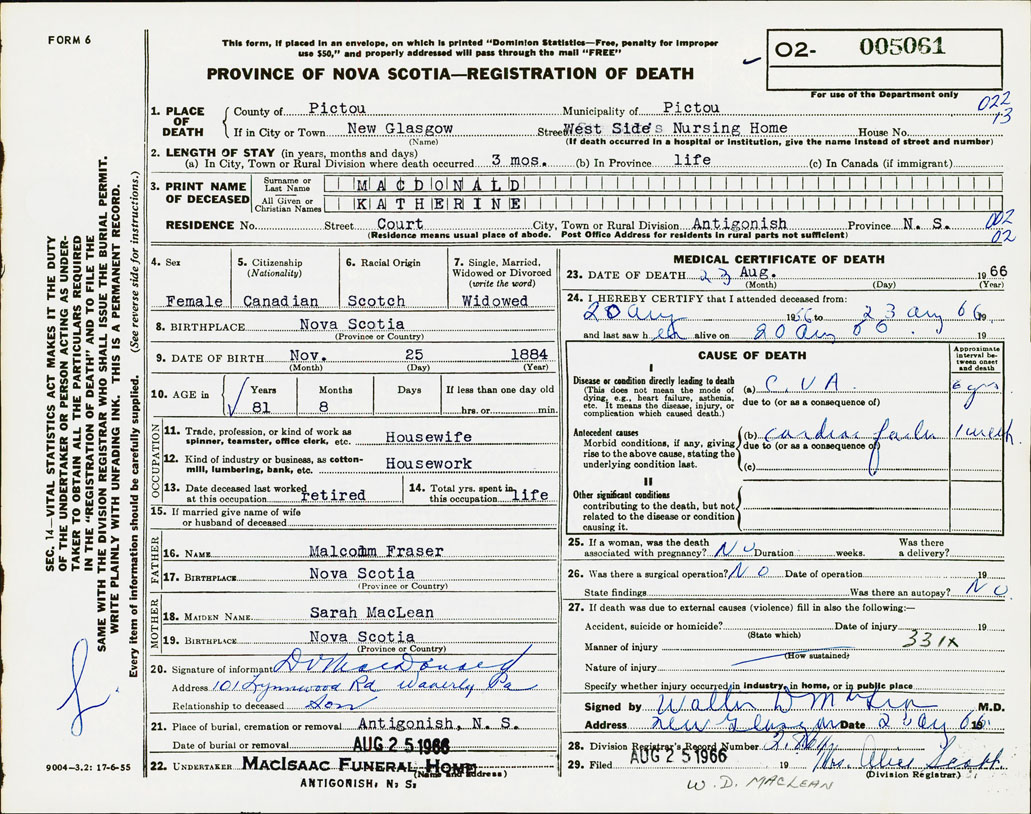 FORM 6
This form, if placed in an envelope, on which is printed "Dominion Statistics—Free, penalty for improper
use $50," and properly addressed will pass through the mail "FREE"
PROVINCE OF NOVA SCOTIA—REGISTRATION OF DEATH
02- 005061
For use of the Department only
022
13
SEC. 14—VITAL STATISTICS ACT MAKES IT THE DUTY
OF THE UNDERTAKER OR PERSON ACTING AS UNDER-
TAKER TO OBTAIN ALL THE PARTICULARS REQUIRED
IN THE "REGISTRATION OF DEATH" AND TO FILE THE
SAME WITH THE DIVISION REGISTRAR WHO SHALL ISSUE THE BURIAL PERMIT.
WRITE PLAINLY WITH UNFADING INK. THIS IS A PERMANENT RECORD.
Every item of information should be carefully supplied. (See reverse side for instructions.)
9004-3.2: 17-6-55
1. PLACE OF DEATH
County of Pictou Municipality of Pictou
If in City or Town New Glasgow Street West Side's Nursing Home House No.
(Name) (If death occurred in a hospital or institution, give the name instead of street and number)
2. LENGTH OF STAY (in years, months and days)
(a) In City, Town or Rural Division where death occurred 3 mos. (b) In Province life (c) In Canada (if immigrant)
3. PRINT NAME OF DECEASED
Surname or Last Name MACDONALD
All Given or Christian Names KATHERINE
RESIDENCE No. Street Court City, Town or Rural Division Antigonish Province N. S.
(Residence means usual place of abode. Post Office Address for residents in rural parts not sufficient)
002
02
4. Sex Female
5. Citizenship (Nationality) Canadian
6. Racial Origin Scotch
7. Single, Married, Widowed or Divorced (write the word) Widowed
8. BIRTHPLACE Nova Scotia
(Province or Country)
9. DATE OF BIRTH Nov. 25 1884
(Month) (Day) (Year)
10. AGE in Years 81 Months 8 Days If less than one day old hrs. or min.
OCCUPATION
11. Trade, profession, or kind of work as spinner, teamster, office clerk, etc. Housewife
12. Kind of industry or business, as cotton-mill, lumbering, bank, etc. Housework
13. Date deceased last worked at this occupation retired
14. Total yrs. spent in this occupation life
15. If married give name of wife or husband of deceased
FATHER
16. NAME Malcolm Fraser
17. BIRTHPLACE Nova Scotia
(Province or Country)
MOTHER
18. MAIDEN NAME Sarah MacLean
19. BIRTHPLACE Nova Scotia
(Province or Country)
20. Signature of informant D V MacDonald
Address 101 Lynnwood Rd Waverly Pa
Relationship to deceased Son
21. Place of burial, cremation or removal Antigonish, N. S.
Date of burial or removal AUG 25 1966
22. UNDERTAKER MACISAAC FUNERAL HOME
(Name and address)
ANTIGONISH, N. S.
MEDICAL CERTIFICATE OF DEATH
23. DATE OF DEATH 23 Aug. 1966
(Month) (Day) (Year)
24. I HEREBY CERTIFY that I attended deceased from:
20 Aug 1966 to 23 Aug 66 19
and last saw h er alive on 20 Aug 66. 19
CAUSE OF DEATH
Approximate interval between onset and death
I
Disease or condition directly leading to death
(This does not mean the mode of dying, e.g., heart failure, asthenia, etc. It means the disease, injury, or complication which caused death.)
(a) C.V.A. 6 yrs
due to (or as a consequence of)
Antecedent causes
Morbid conditions, if any, giving rise to the above cause, stating the underlying condition last.
(b) cardiac failure 1 week
due to (or as a consequence of)
(c)
II
Other significant conditions
contributing to the death, but not related to the disease or condition causing it.
25. If a woman, was the death associated with pregnancy? No Duration weeks. Was there a delivery?
26. Was there a surgical operation? NO Date of operation 19
State findings Was there an autopsy? NO
27. If death was due to external causes (violence) fill in also the following:—
Accident, suicide or homicide? Date of injury 19
(State which)
Manner of injury 331X
(How sustained)
Nature of injury
Specify whether injury occurred in industry, in home, or in public place
Signed by Walter D M M.D.
Address New Glasgow Date Aug 66 19
28. Division Registrar's Record Number
29. Filed AUG 25 1966 19 Mrs. Alice Scott
(Division Registrar)
W. D. MACLEAN